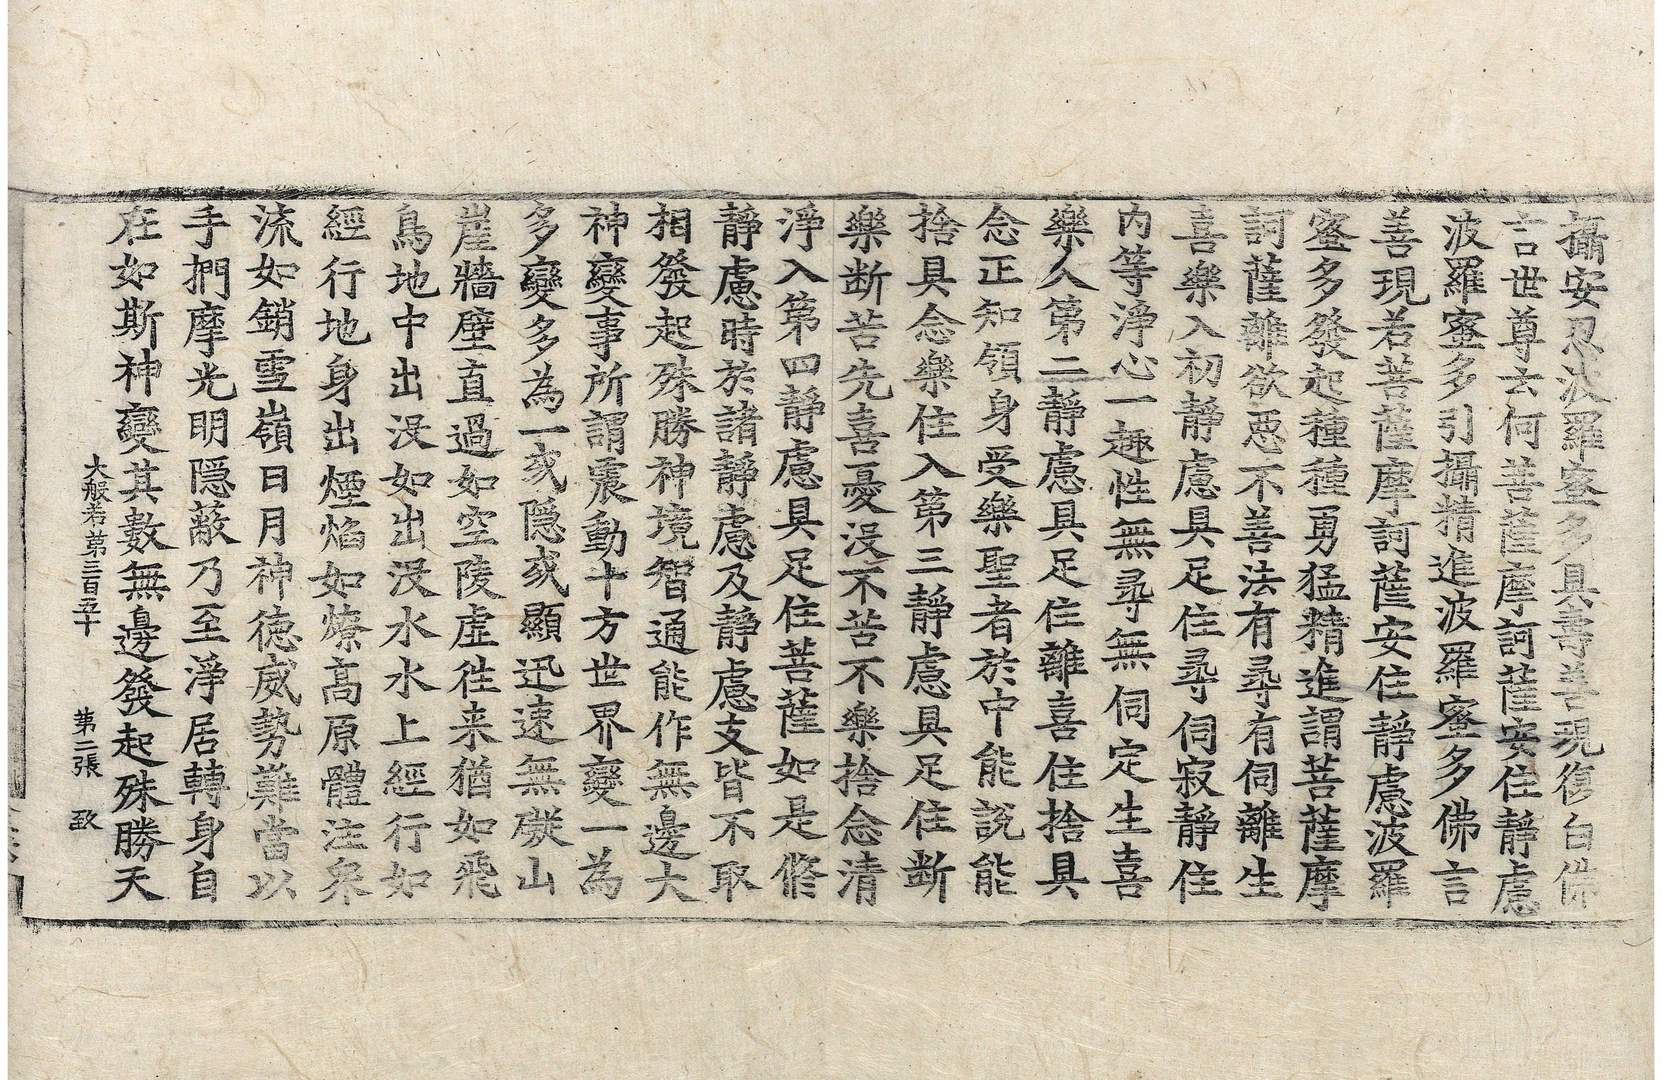 攝安忍波羅蜜多具壽善現復白佛
言世尊云何菩薩摩訶薩安住靜慮
波羅蜜多引攝精進波羅蜜多佛言
善現若菩薩摩訶薩安住靜慮波羅
蜜多發起種種勇猛精進謂菩薩摩
訶薩離欲惡不善法有尋有伺離生
喜樂入初靜慮具足住尋伺寂靜住
內等淨心一趣性無尋無伺定生喜
樂入第二靜慮具足住離喜住捨具
念正知領身受樂聖者於中能說能
捨具念樂住入第三靜慮具足住斷
樂斷苦先喜憂沒不苦不樂捨念清
淨入第四靜慮具足住菩薩如是修
靜慮時於諸靜慮及靜慮支皆不取
相發起殊勝神境智通能作無邊大
神變事所謂震動十方世界變一為
多變多為一或隱或顯迅速無礙山
崖牆壁直過如空陵虛往來猶如飛
鳥地中出沒如出沒水水上經行如
經行地身出煙焰如燎高原體注衆
流如銷雪嶺日月神德威勢難當以
手捫摩光明隱蔽乃至淨居轉身自
在如斯神變其數無邊發起殊勝天
大般若第三百五十　第二張　致